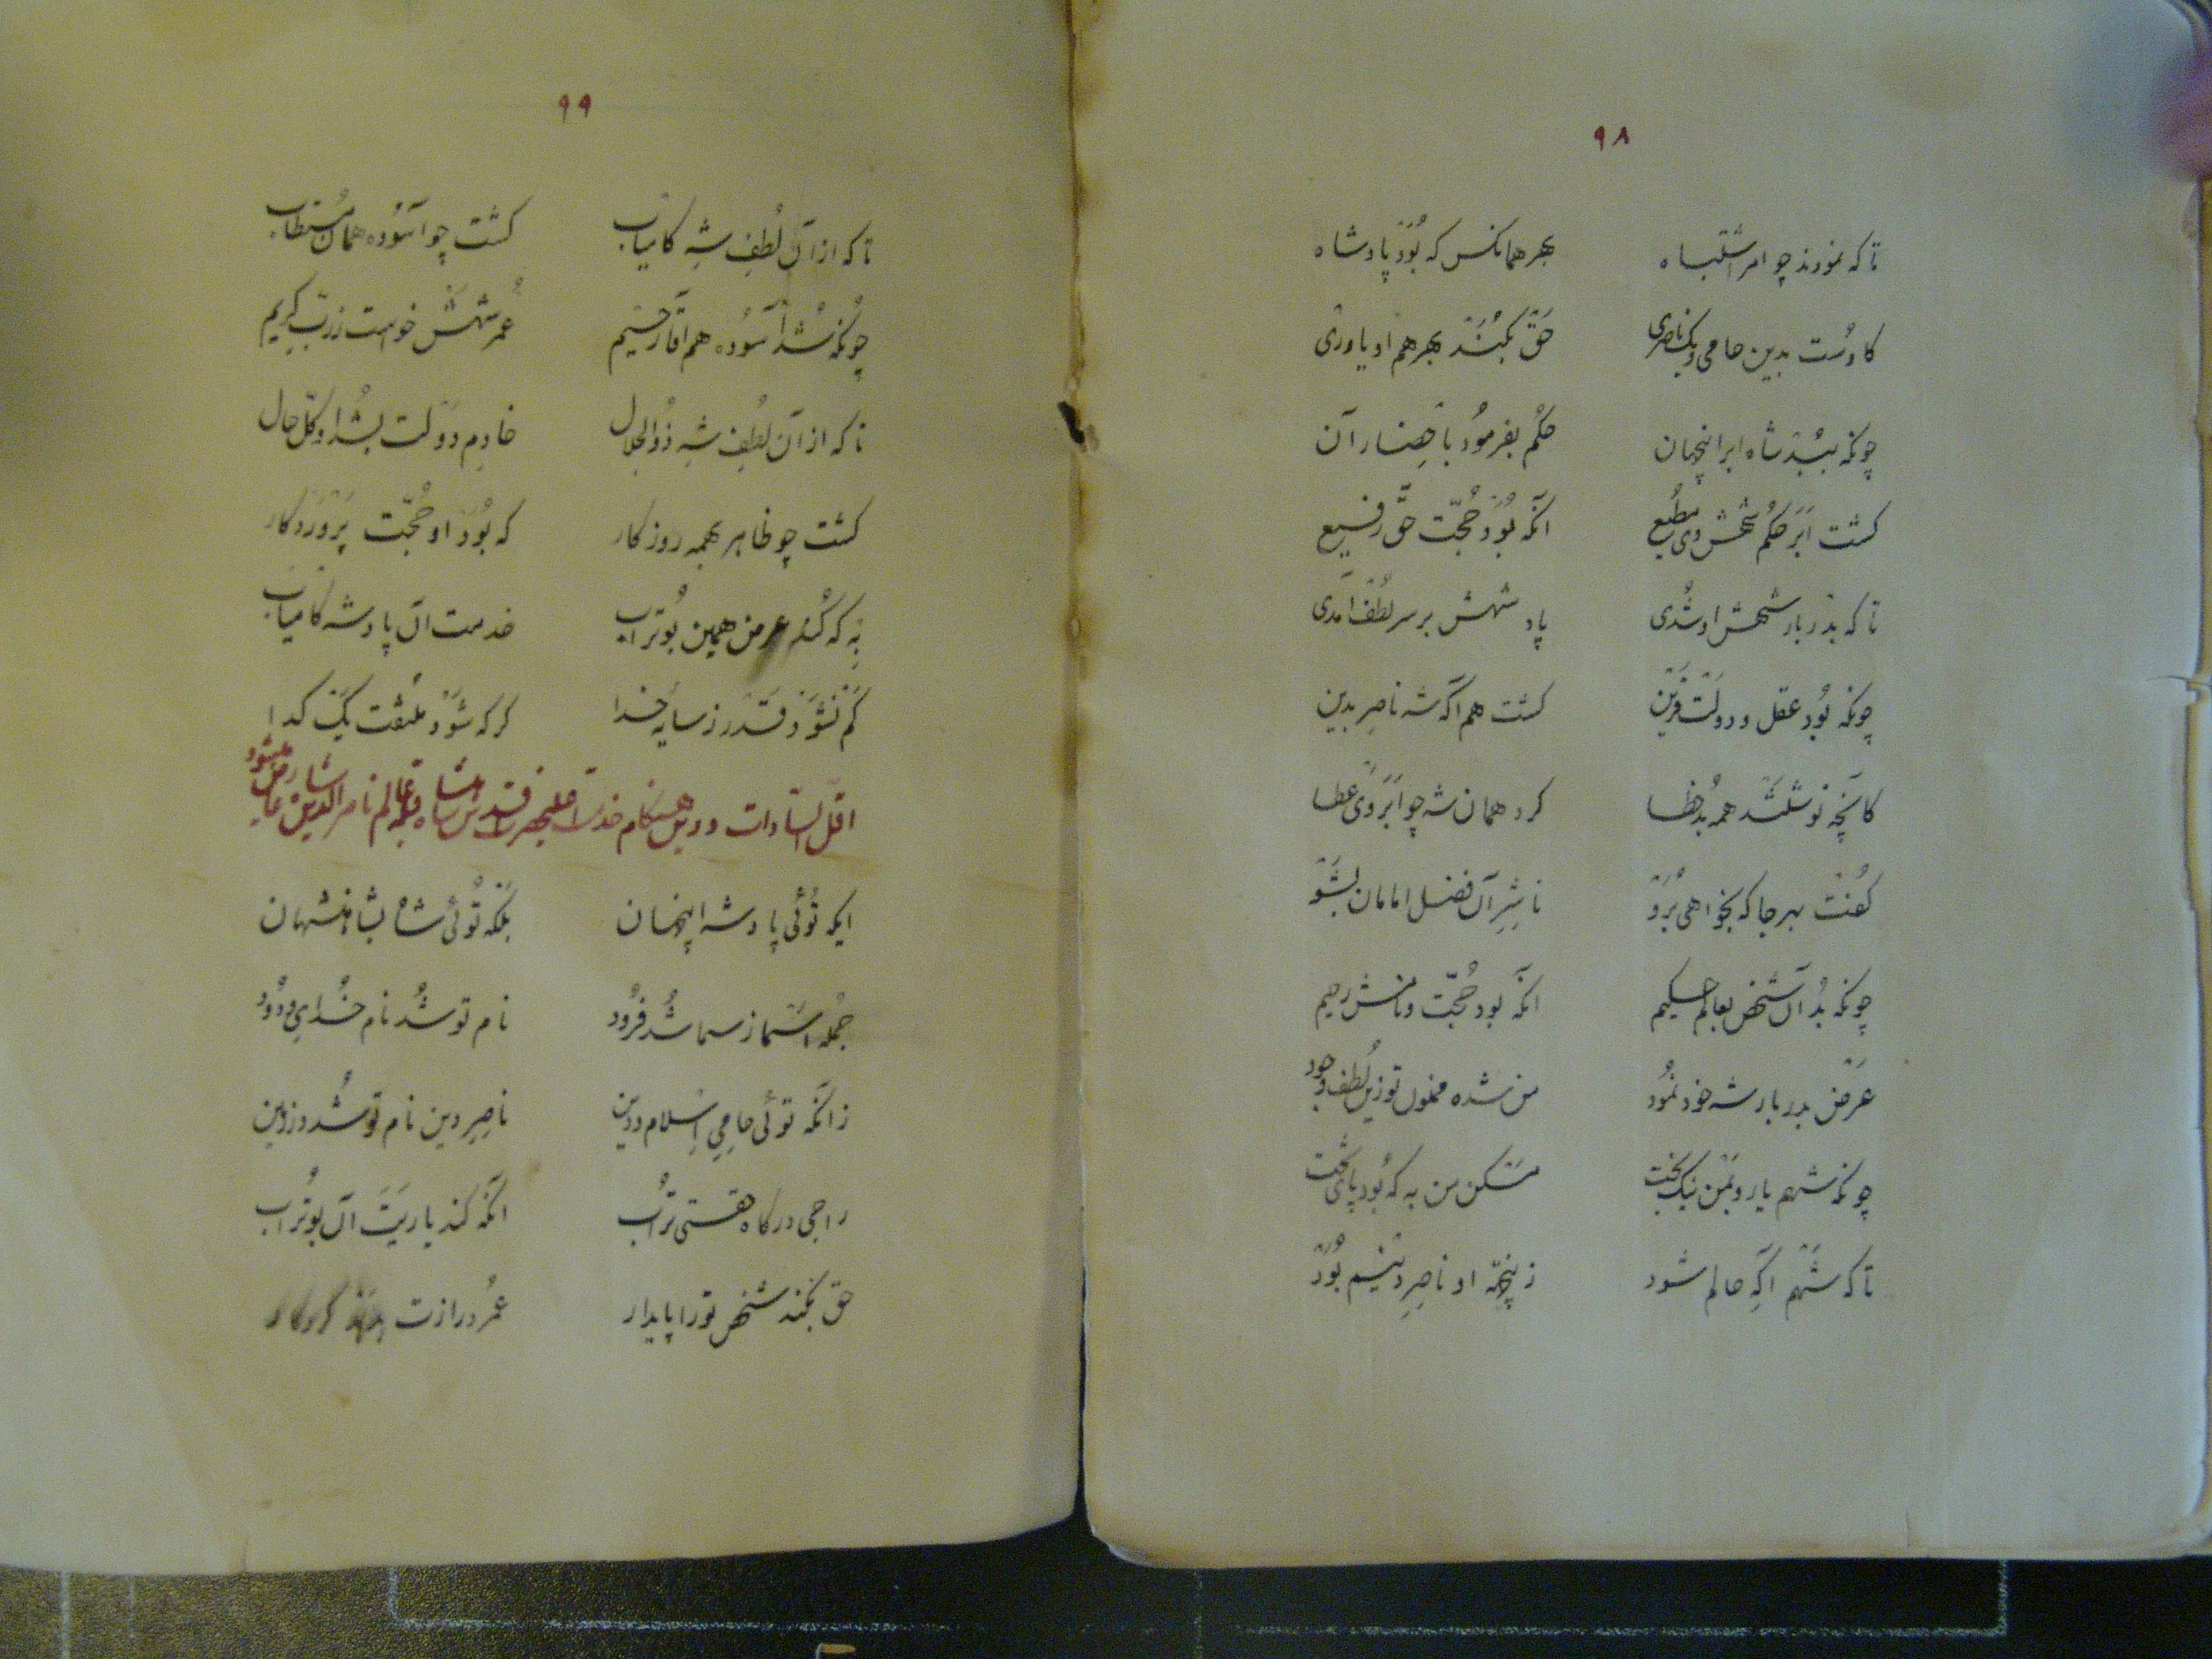 ۹۸
تا که نمودند چو امر اشتباه بهر همانکس که بُوَد پادشاه
کاوست بدین حامی و یک ناصری حق بکند بهر هم او یاوری
چونکه ببُد شاه ابر اینچهان حکم بفرمود باحضار آن
گشت ابر حکم شهش وی مطیع آنکه بُوَد حُجّت حقّ رفیع
تا که بدربار شهش او شدی پادشهش بر سر لطف آمدی
چونکه بُود عقل و دولت قرین گشت هم آگه شه ناصر بدین
کانچه نوشتند همه بُد خطا کرد همان شه چو ابر وی عطا
گفت بهر جا که بخواهی برو ناشر آن فضل امامان بشو
چونکه بُد آن شخص بعالم حکیم آنکه بود حُجّت و نامش رحیم
عرض بدربار شه خود نمود من شده ممنون تو زین لطف و جود
چونکه شهم یار و بمن نیک بخت مسکن من به که بُود پای تخت
تا که شهم آگه حالم شود زینچه او ناصر دینم بُوَد
۹۹
تا که از آن لُطفِ شهِ کامیاب گشت چو آسوده همان مستطاب
چونکه شد آسوده هم آقا رحیم عمر شهش خواست ز ربّ کریم
تا که از آن لُطفِ شهِ ذوالجلال خادم دولت بشد او کلّ حال
گشت چو ظاهر بهمه روزگار که بُوَد او حُجّت پروردگار
به که کُند عرض همین بُوتراب خدمت آن پادشه کامیاب
کم نشود قدر ز سایه خدا گر که شود ملتفت یک گدا
اقلّ السّادات در این هنگام خدمت اعلیحضرت قدر قدرت شاهنشاه عالم ناصرالدین شاه عارض میشود
ایکه تُوئی پادشه اینجهان بلکه تُوئی شاه بشاهنشهان
جُمله اسما ز سما شد فرود نام تو شُد نام خُدای ودود
زانکه توئی حامیِ اِسلام و دین ناصِرِ دین نام تو شُد در زمین
راجی درگاه تو هستی تراب آنکه کند یاریت آن بوتُراب
حق بکند شخص تو را پایدار عُمر درازت